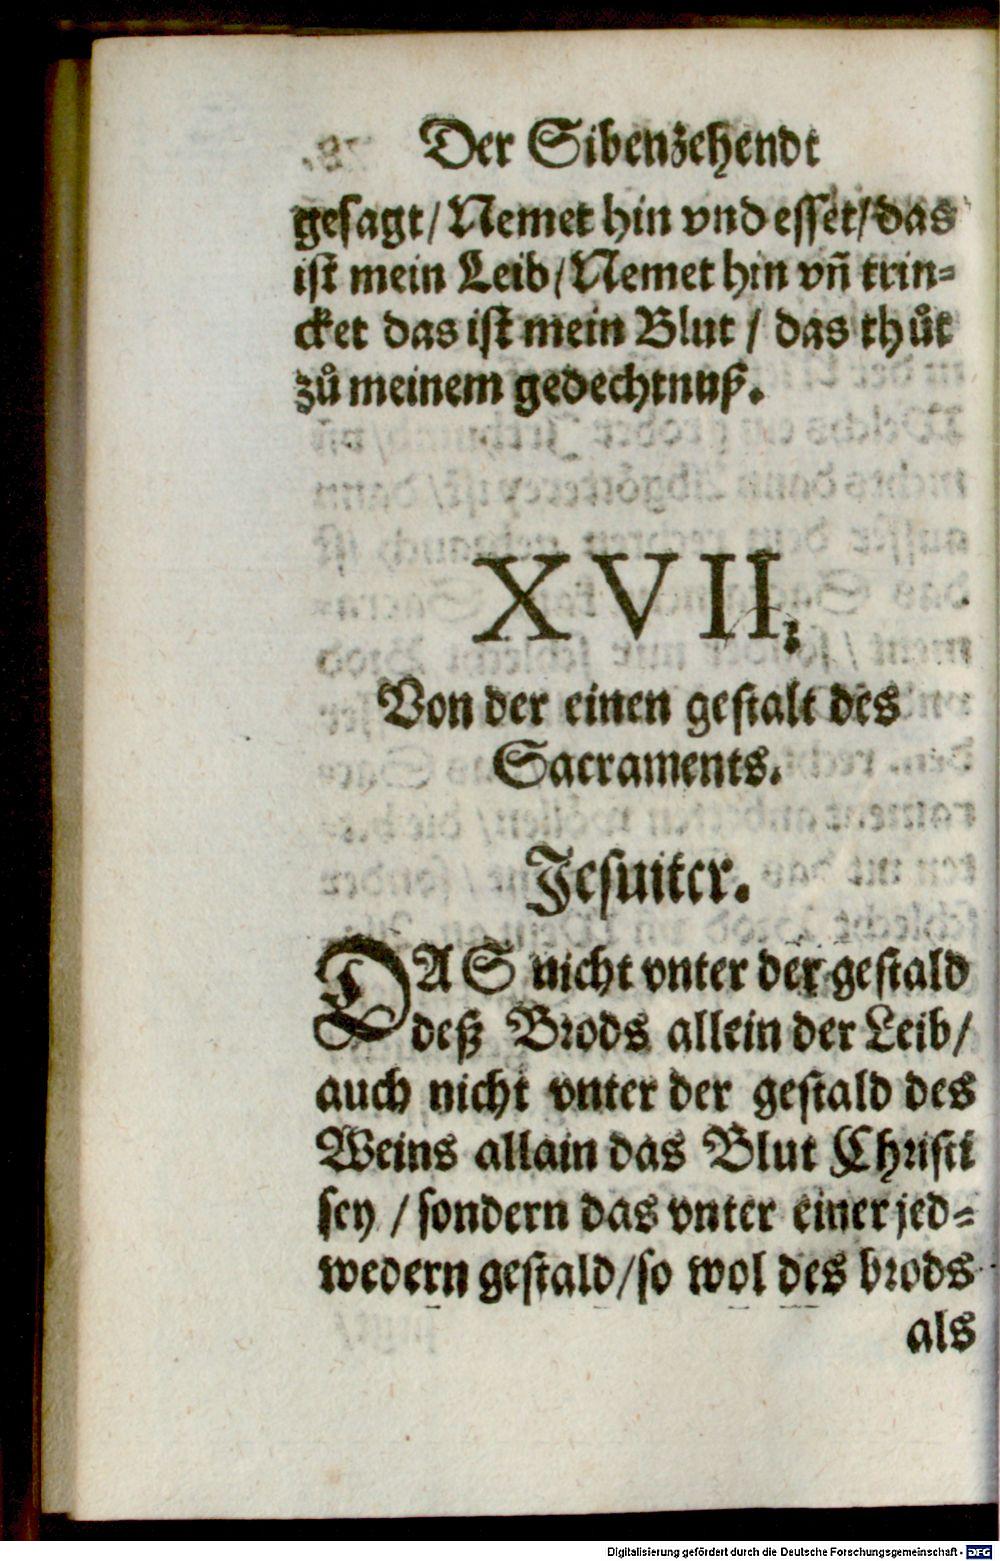 Der Sibenzehendt
gesagt/ Nemet hin vnd esset/ das
ist mein Leib/ Nemet hin vñ trin-
cket das ist mein Blut / das thůt
zů meinem gedechtnuß.
XVII.
Von der einen gestalt des
Sacraments.
Jesuiter.
DAS nicht vnter der gestald
deß Brods allein der Leib/
auch nicht vnter der gestald des
Weins allain das Blut Christi
sey / sondern das vnter einer jed-
wedern gestald/ so wol des brods
als
Digitalisierung gefördert durch die Deutsche Forschungsgemeinschaft - DFG